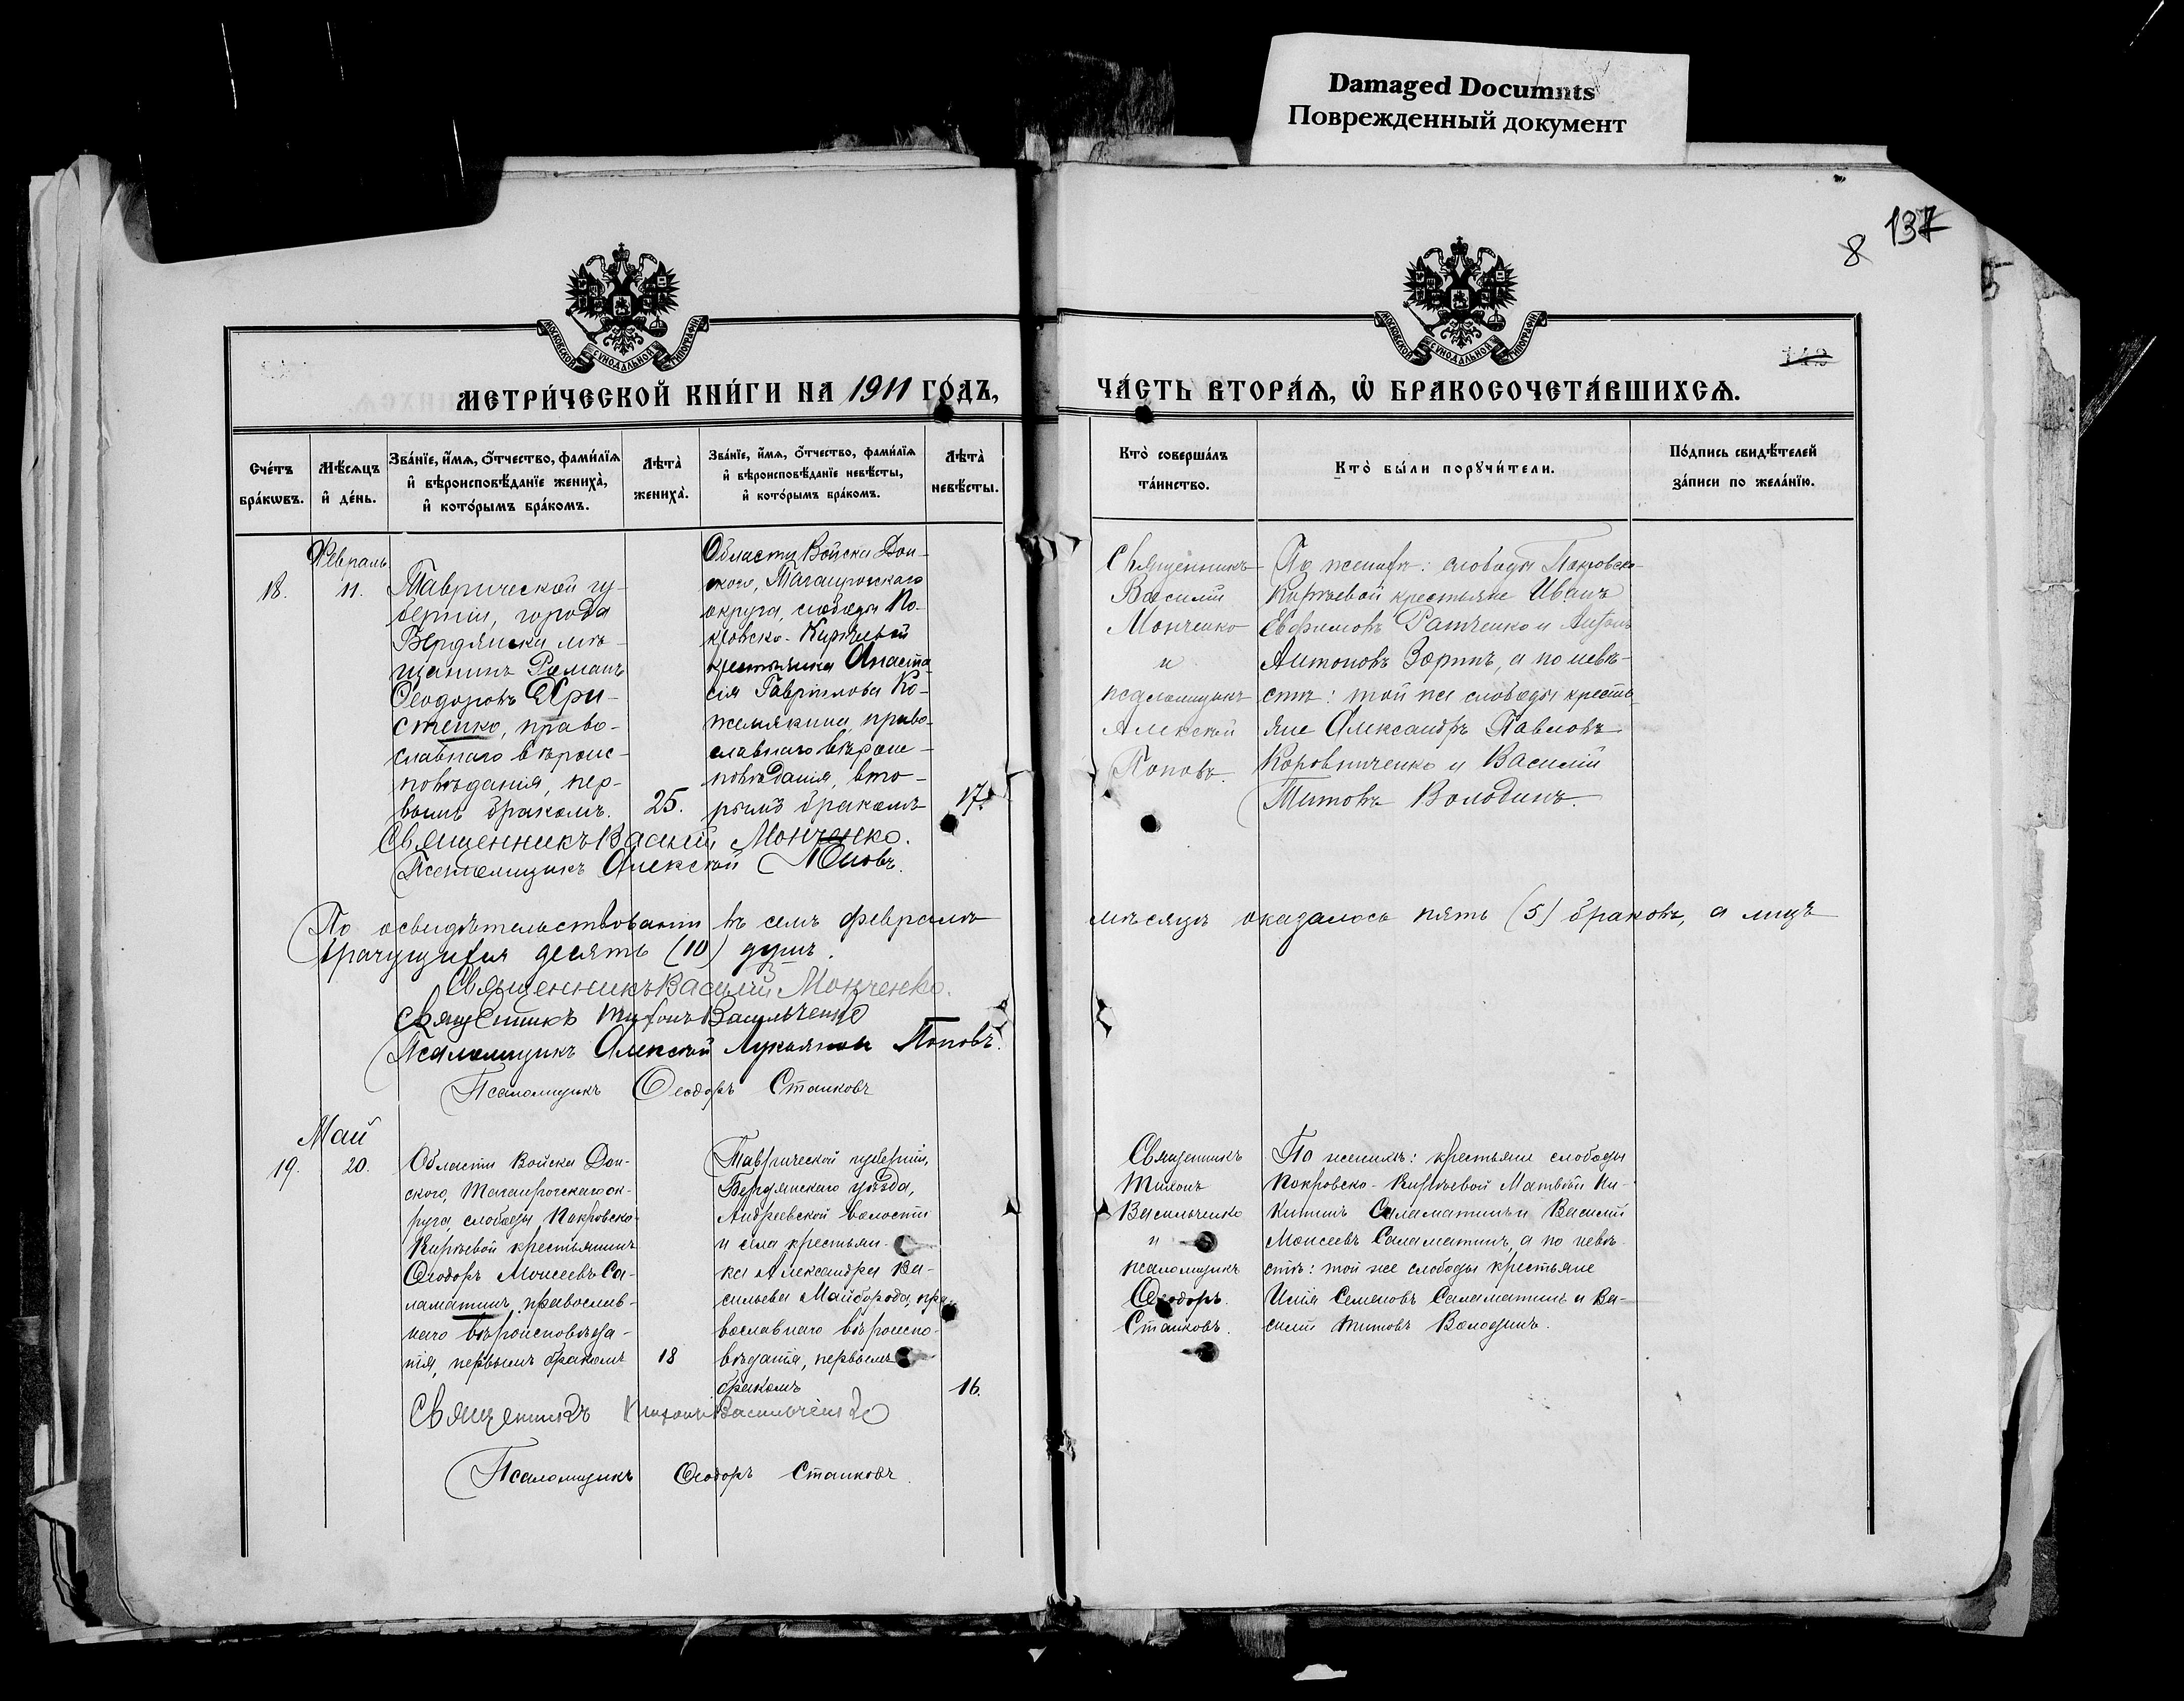 Damaged Documnts
Поврежденный документ
137
8
МОСКОВСКОЙ СѴНОДАЛЬНОЙ ТИПОГРАФІИ
МОСКОВСКОЙ СѴНОДАЛЬНОЙ ТИПОГРАФІИ
МЕТРИ́ЧЕСКОЙ КНИ́ГИ НА 1911 ГО́ДЪ,
ЧА́СТЬ ВТОРА́Ѧ, Ѡ҆ БРАКОСОЧЕТА́ВШИХСѦ.
Сче́тъ бра́кѡвъ.
Мѣ́сѧцъ и҆ де́нь.
Зва́нїе, и҆́мѧ, ѻ҆́тчество, фами́лїѧ
и҆ вѣроисповѣ́данїе жениха̀,
и҆ кото́рымъ бра́комъ.
Лѣта̀ жениха̀.
Зва́нїе, и҆́мѧ, ѻ҆́тчество, фами́лїѧ
и҆ вѣроисповѣ́данїе невѣ́сты,
и҆ кото́рымъ бра́комъ.
Лѣта̀ невѣ́сты.
Кто̀ соверша́лъ та́инство.
Кто̀ бы́ли порꙋчи́тели.
По́дпись свидѣ́телей за́писи по жела́нїю.
Февраль
18.
11.
Таврической гу-
берніи, города
Бердянска мѣ-
щанинъ Романъ
Ѳеодоровъ Хри-
стенко, право-
славнаго вѣроис-
повѣданія, пер-
вымъ бракомъ.
25.
Области Войска Дон-
ского, Таганрогскаго
округа, слободы По-
кровско-Кирѣевой
крестьянка Анаста-
сія Гавріилова Ко-
жемякина, право-
славнаго вѣроис-
повѣданія, вто-
рымъ бракомъ
17.
Священникъ
Василій
Монченко
и
псаломщикъ
Алексѣй
Поповъ.
По женихѣ: слободы Покровско-
Кирѣевой крестьяне Иванъ
Евфимовъ Ратченко и
Антоновъ Зоринъ, а по невѣ-
стѣ: той же слободы кресть-
яне Александръ Павловъ
Коровниченко и Василій
Титовъ Володинъ.
Священникъ Василій Монченко.
Псаломщикъ Алексѣй Поповъ.
По освидѣтельствованіи въ семъ февралѣ мѣсяцѣ оказалось пять (5) браковъ, а лицъ
брачущихся десять (10) душъ.
Священникъ Василій Мончeнко.
Священникъ Тихонъ Васильченко
Псаломщикъ Алексѣй Лукьяновъ Поповъ.
Псаломщикъ Ѳеодоръ Станковъ
Май
19.
20.
Области Войска Дон-
ского, Таганрогскаго ок-
руга, слободы Покровско-
Кирѣевой крестьянинъ
Ѳеодоръ Моисеевъ Са-
ламатинъ, православ-
наго вѣроисповѣда-
нія, первымъ бракомъ
18
Таврической губерніи,
Бердянскаго уѣзда,
Андреевской волости
и села крестьян-
ка Александра Ва-
сильева Майборода, пра-
вославнаго вѣроиспо-
вѣданія, первымъ
бракомъ
16.
Священникъ
Тихонъ
Васильченко
и
псаломщикъ
Ѳеодоръ
Станковъ.
По женихѣ: крестьяне слободы
Покровско-Кирѣевой Матвѣй Ни-
китинъ Саламатинъ и Василій
Моисеевъ Саламатинъ, а по невѣ-
стѣ: той же слободы крестьяне
Илія Семеновъ Саламатинъ и Ва-
силій Титовъ Володинъ.
Священникъ Тихонъ Васильченко
Псаломщикъ Ѳеодоръ Станковъ.